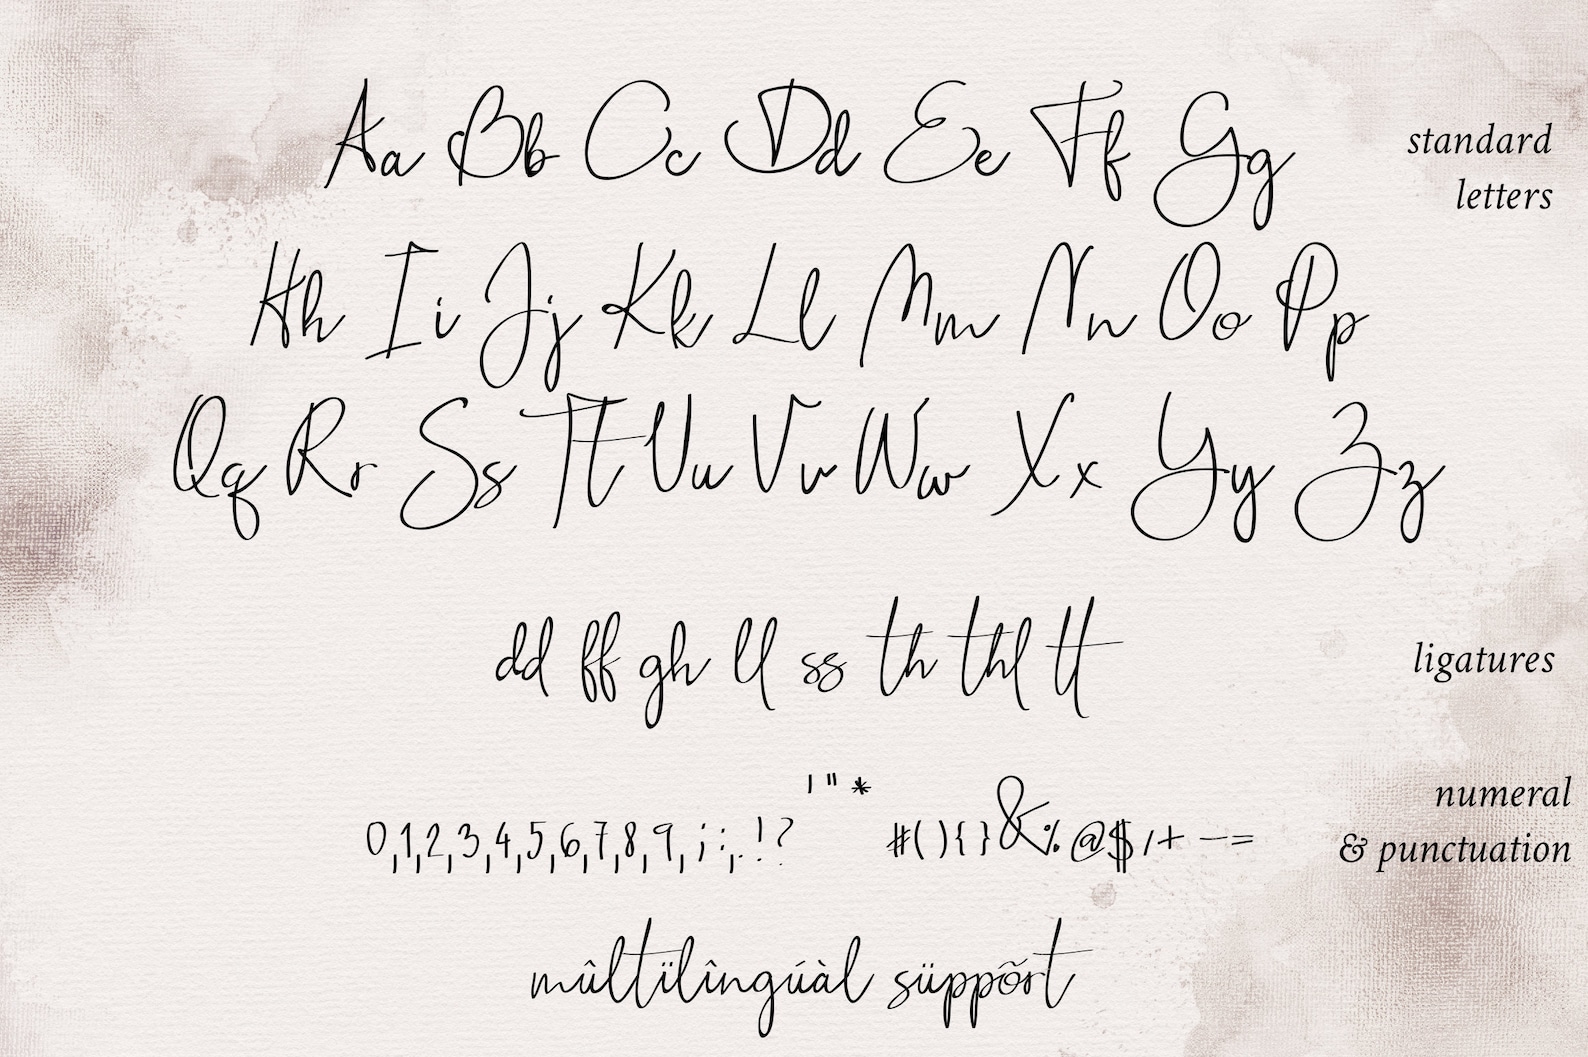 Aa Bb Cc Dd Ee Ff Gg
standard
letters
Hh Ii Jj Kk Ll Mm Nn Oo Pp
Qq Rr Ss Tt Uu Vv Ww Xx Yy Zz
dd ff gh ll ss th thl tt
ligatures
0,1,2,3,4,5,6,7,8,9, ; : , . ! ? ' " * # ( ) { } & % @ $ / + – - =
numeral
& punctuation
mûltïlîngúàl süppõrt